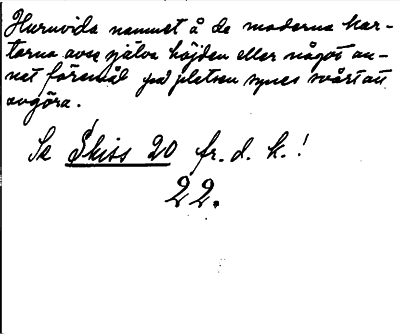 Huruvida namnet å de moderna kar-
torna avse själva höjden eller något an-
net föremål på platsen synes svårt att
avgöra.
Se Skiss 20 fr. d. k.!
22.